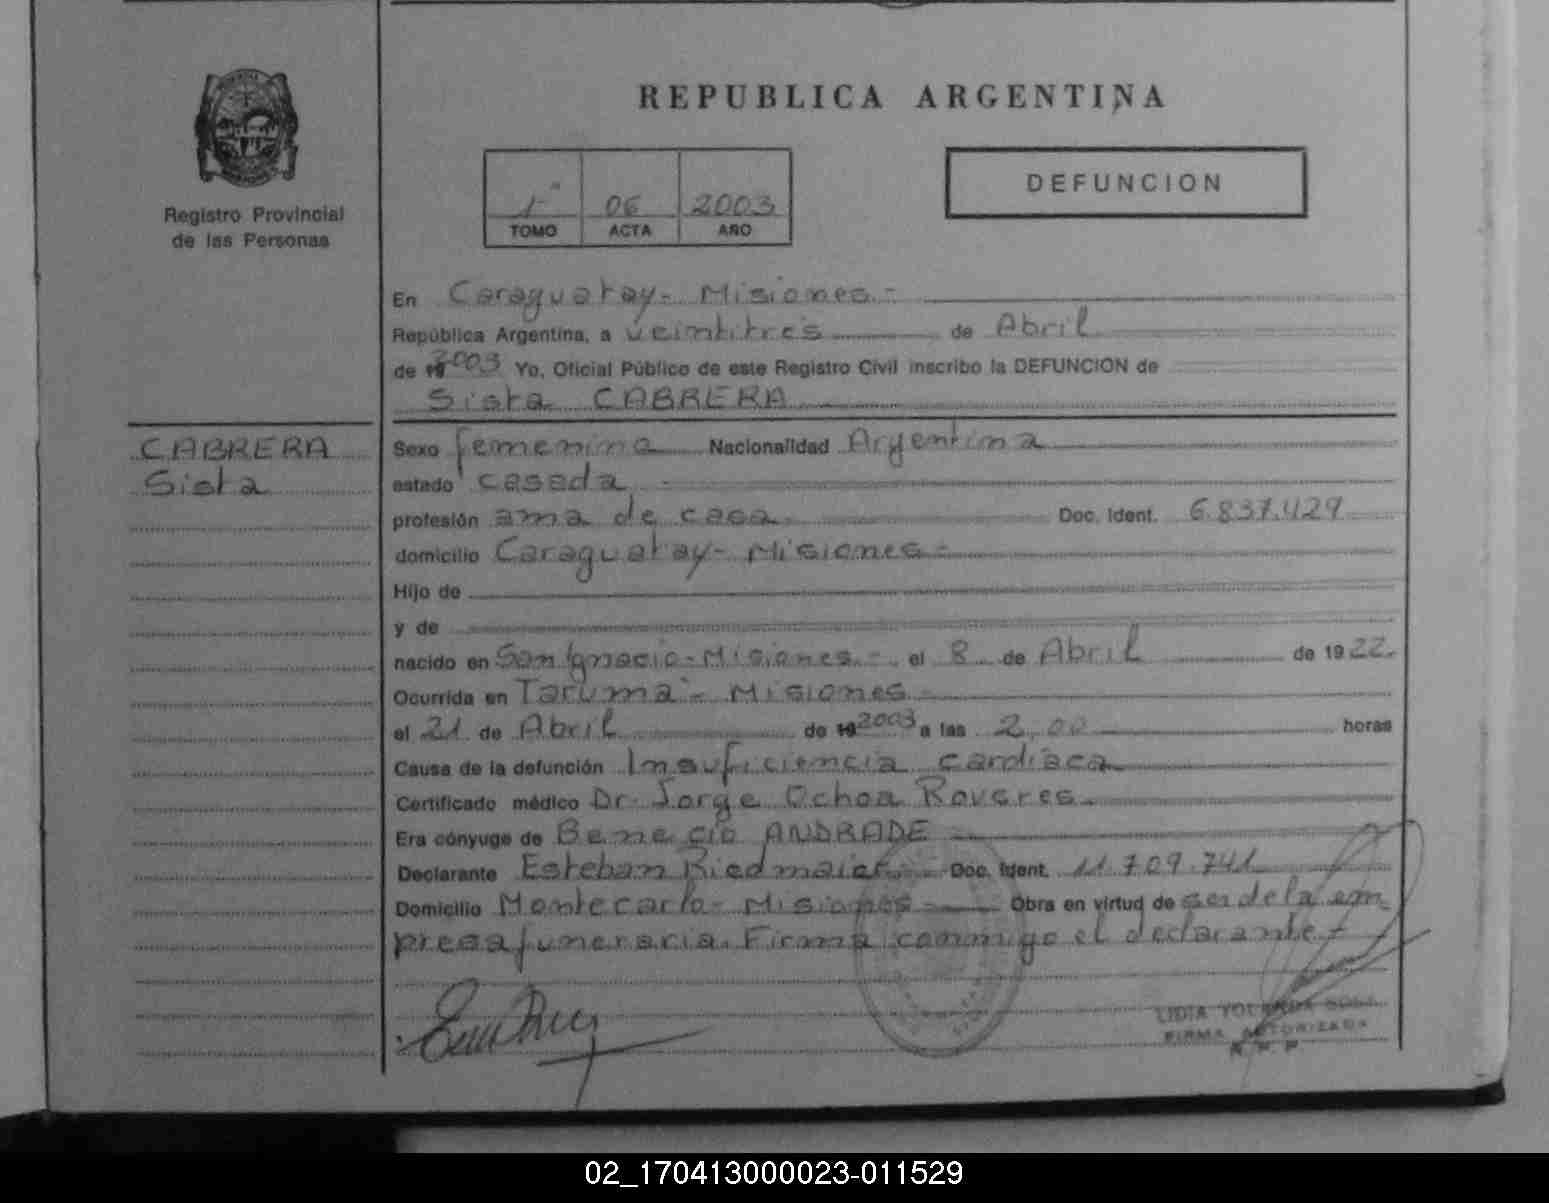 REPUBLICA ARGENTINA
Registro Provincial
de las Personas
1º 06 2003
TOMO ACTA AÑO
DEFUNCION
En Caraguatay - Misiones -
República Argentina, a veintitres de Abril
de 2003 Yo, Oficial Público de este Registro Civil inscribo la DEFUNCION de
Sista CABRERA
CABRERA
Sista
Sexo femenino Nacionalidad Argentina
estado casada -
profesión ama de casa - Doc. Ident. 6.837.429
domicilio Caraguatay - Misiones -
Hijo de
y de
nacido en San Ignacio - Misiones - el 8 de Abril de 1922.
Ocurrida en Tarumá - Misiones -
el 21 de Abril de 2003 a las 2,00 horas
Causa de la defunción Insuficiencia cardíaca
Certificado médico Dr. Jorge Ochoa Roveres -
Era cónyuge de Benecio ANDRADE -
Declarante Esteban Riedmaier - Doc. Ident. 11.709.741
Domicilio Montecarlo - Misiones - Obra en virtud de ser de la em_
presa funeraria. Firma conmigo el declarante -
LIDIA YOLANDA
FIRMA AUTORIZADA
R. P. P.
02_170413000023-011529